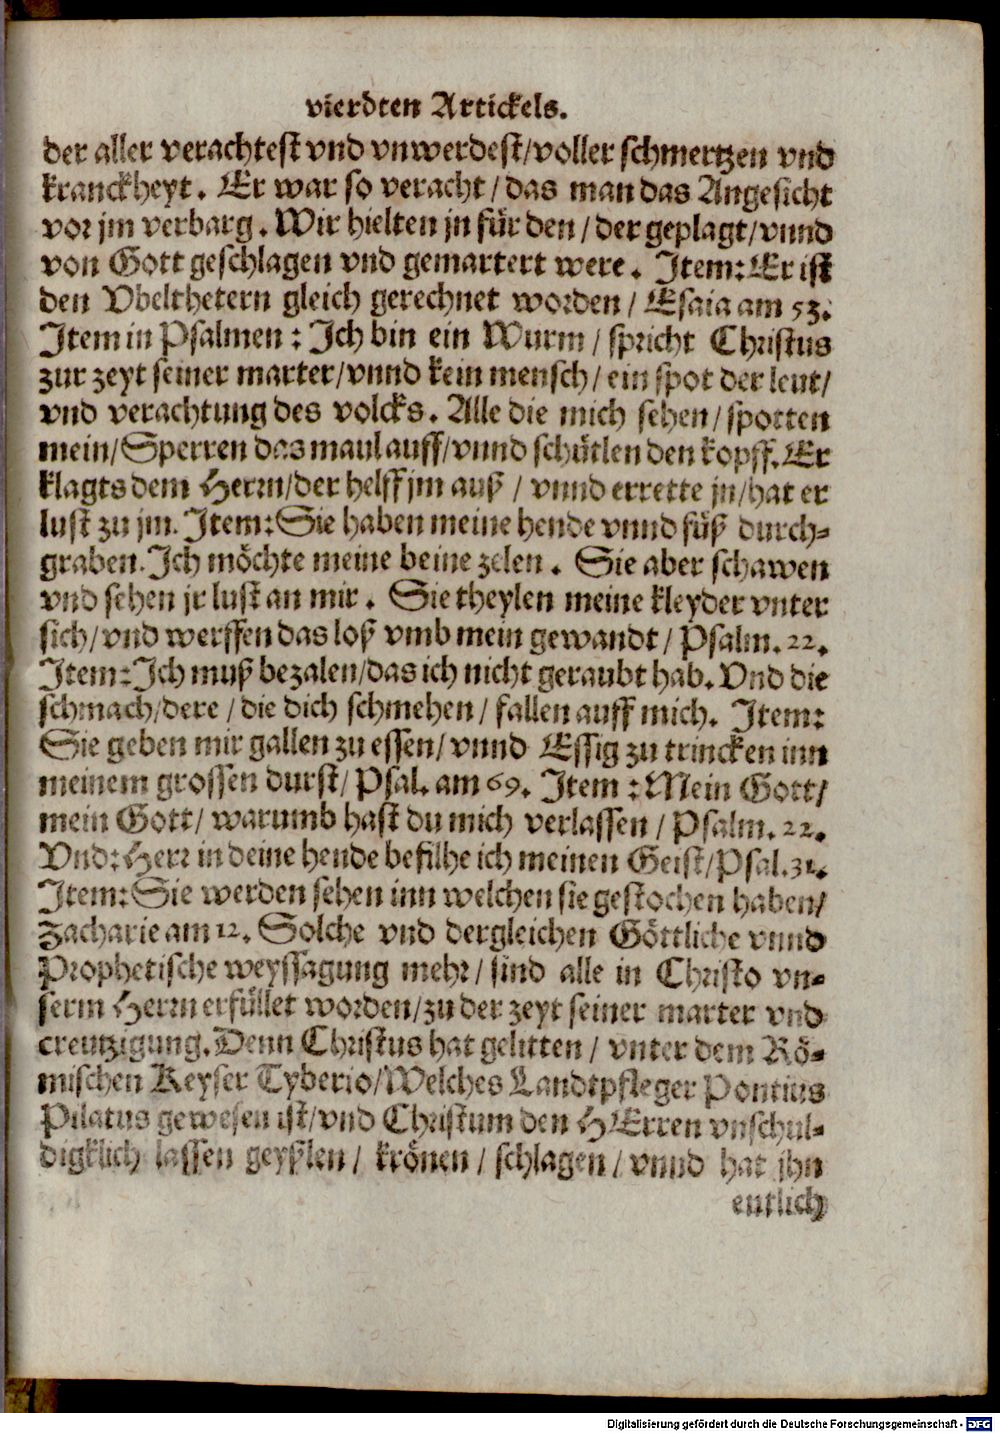 vierdten Artickels.
der aller verachtest vnd vnwerdest/voller schmertzen vnd
kranckheyt. Er war so veracht/das man das Angesicht
vor jm verbarg. Wir hielten jn für den/der geplagt/vnnd
von Gott geschlagen vnd gemartert were. Item: Er ist
den Vbelthetern gleich gerechnet worden/Esaia am 53.
Item in Psalmen: Ich bin ein Wurm/spricht Christus
zur zeyt seiner marter/vnnd kein mensch/ein spot der leut/
vnd verachtung des volcks. Alle die mich sehen/spotten
mein/Sperren das maul auff/vnnd schütlen den kopff. Er
klagts dem Herrn/der helff jm auß/vnnd errette jn/hat er
lust zu jm. Item: Sie haben meine hende vnnd füß durch-
graben. Ich möchte meine beine zelen. Sie aber schawen
vnd sehen jr lust an mir. Sie theylen meine kleyder vnter
sich/vnd werffen das loß vmb mein gewandt/Psalm. 22.
Item: Ich muß bezalen/das ich nicht geraubt hab. Vnd die
schmach/dere/die dich schmehen/fallen auff mich. Item:
Sie geben mir gallen zu essen/vnnd Essig zu trincken inn
meinem grossen durst/Psal. am 69. Item: Mein Gott/
mein Gott/warumb hast du mich verlassen/Psalm. 22.
Vnd: Herr in deine hende befilhe ich meinen Geist/Psal. 31.
Item: Sie werden sehen inn welchen sie gestochen haben/
Zacharie am 12. Solche vnd dergleichen Göttliche vnnd
Prophetische weyssagung mehr/sind alle in Christo vn-
serm Herrn erfüllet worden/zu der zeyt seiner marter vnd
creutzigung. Denn Christus hat gelitten/vnter dem Rö-
mischen Keyser Tyberio/Welches Landtpfleger Pontius
Pilatus gewesen ist/vnd Christum den HErren vnschul-
digklich lassen geyßlen/krönen/schlagen/vnnd hat jhn
entlich
Digitalisierung gefördert durch die Deutsche Forschungsgemeinschaft - DFG